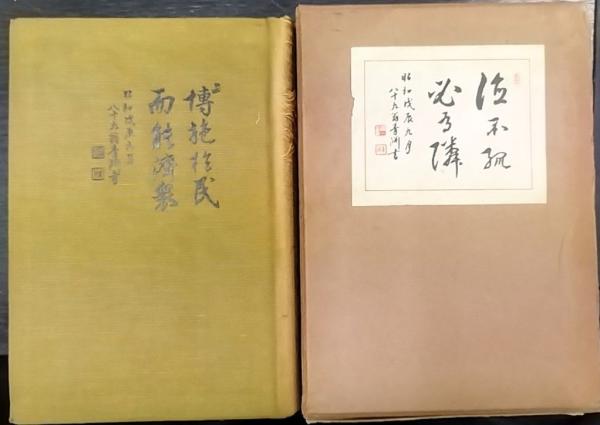 博施於民
而能濟衆
昭和戊辰九月
八十九翁青淵書
德不孤
必有隣
昭和戊辰九月
八十九翁青淵書